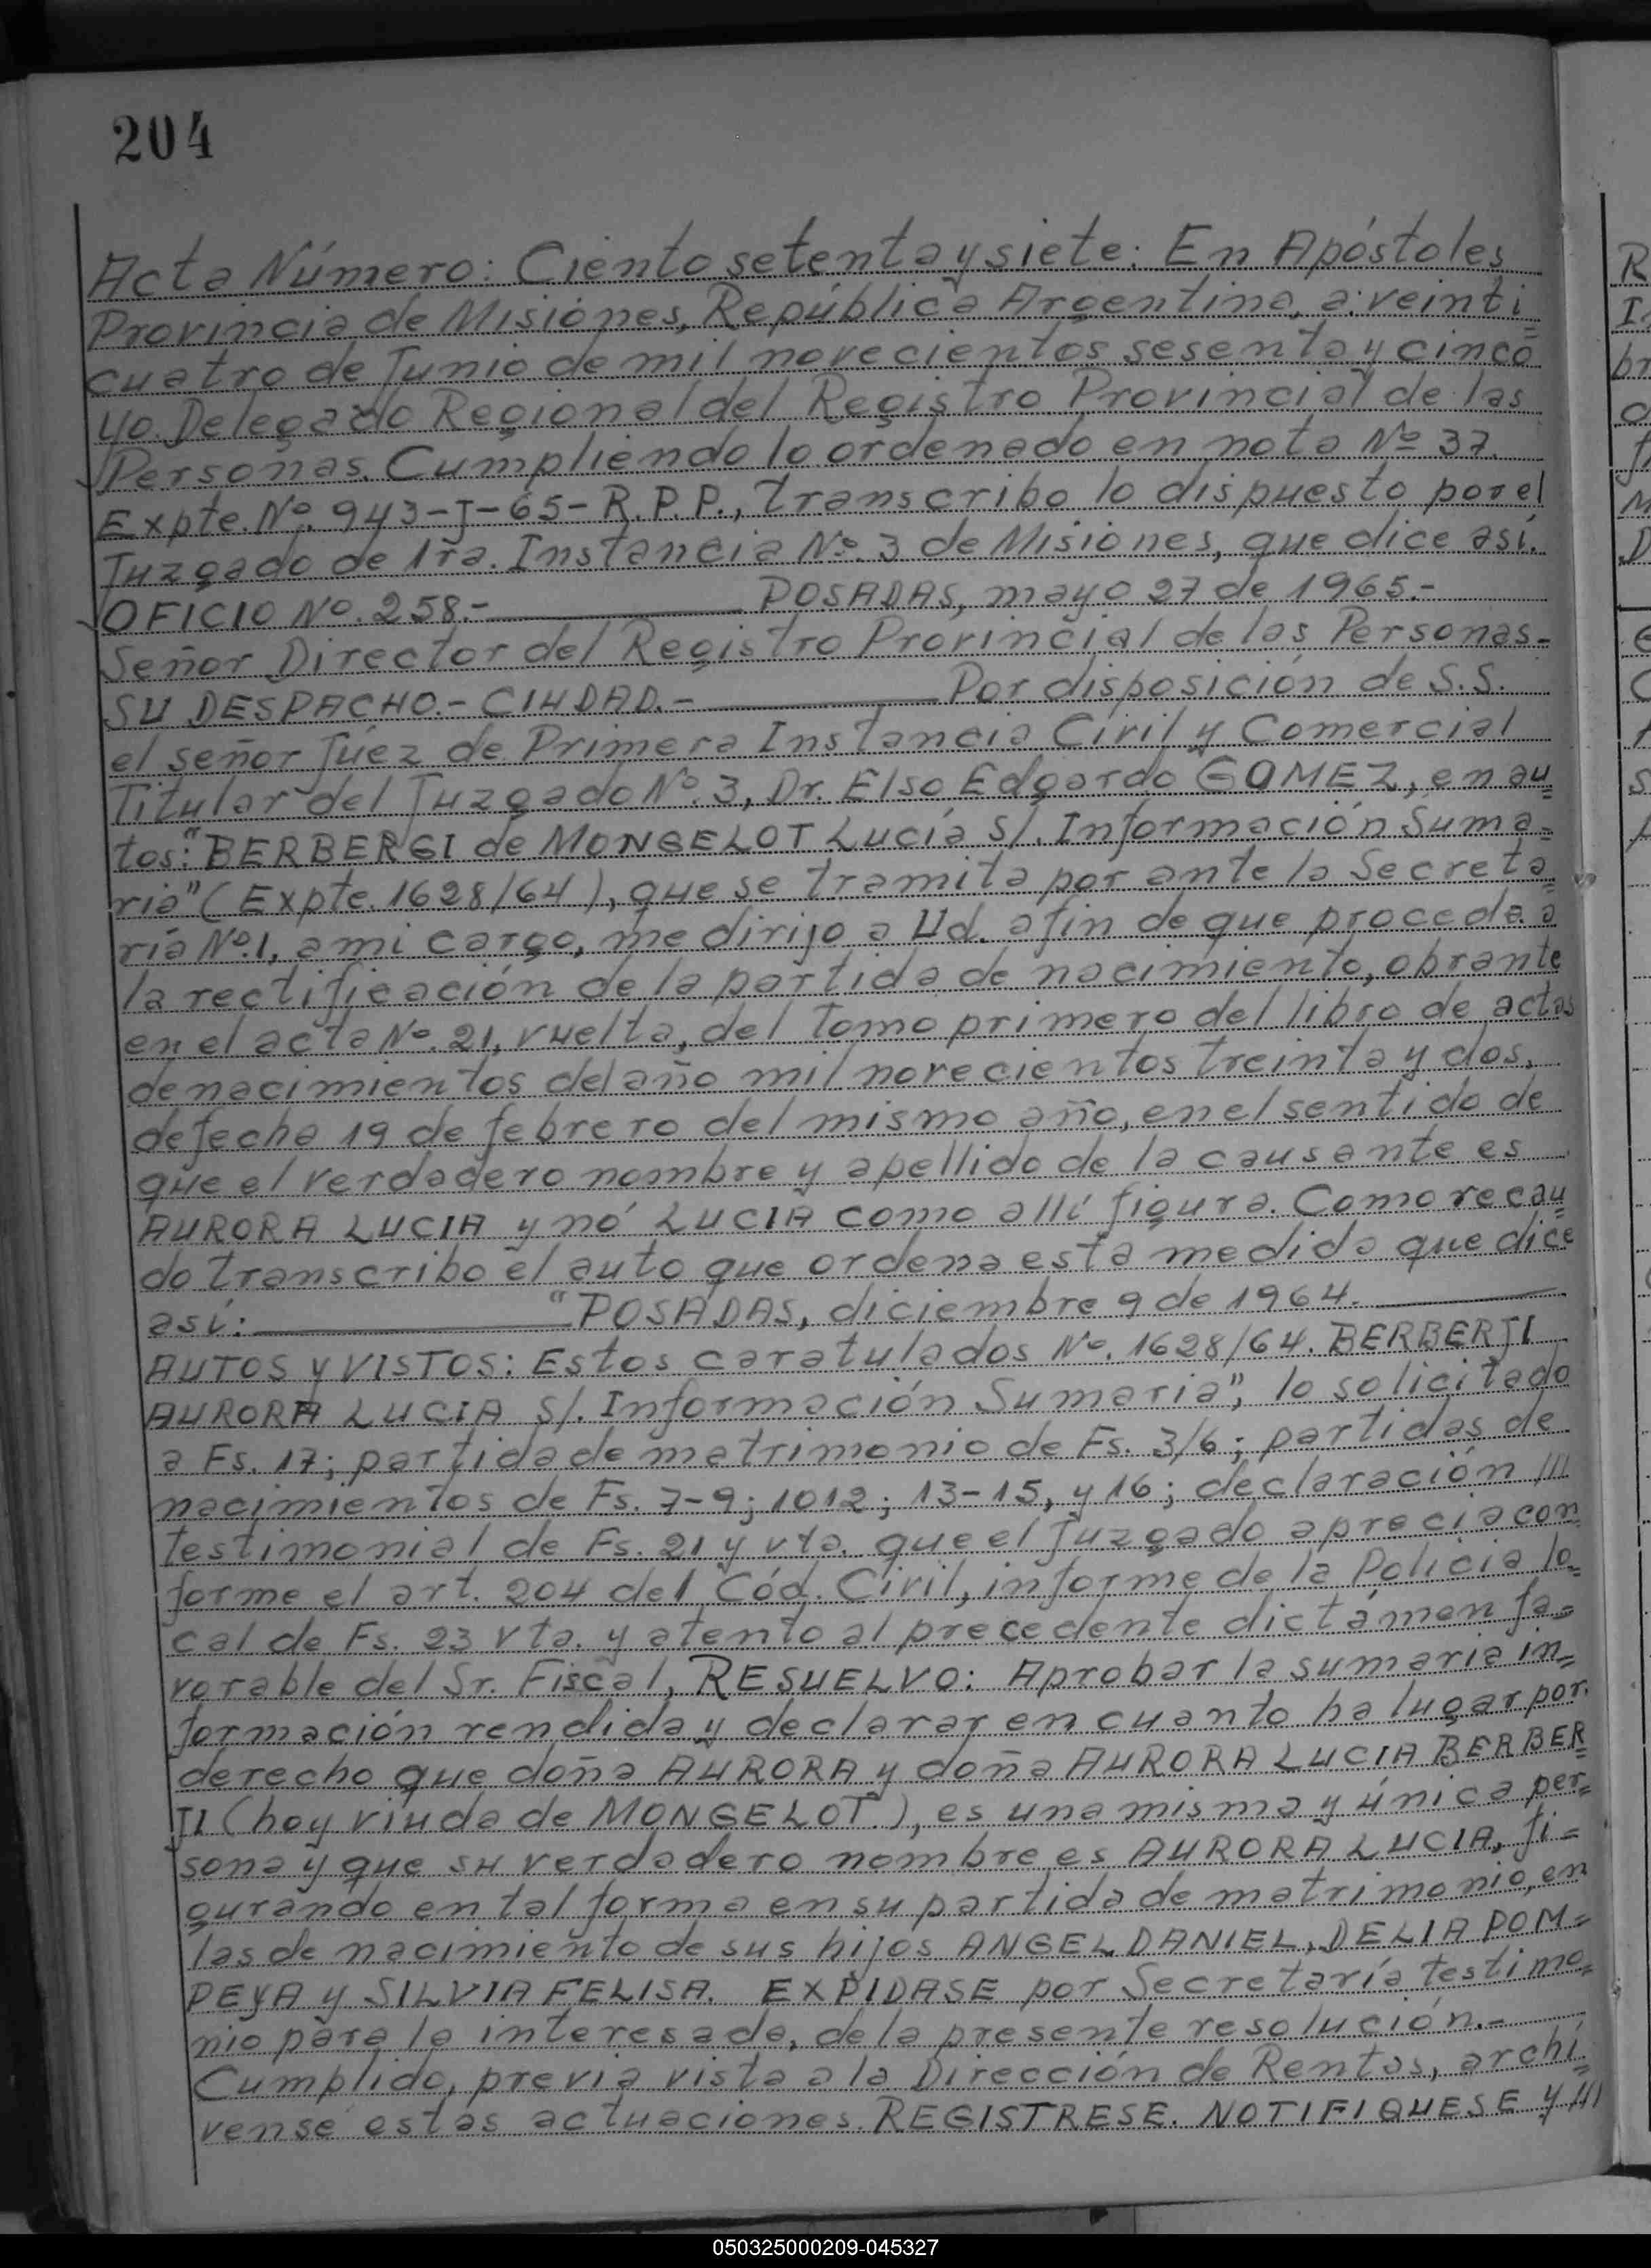 204
Acta Número: Ciento setenta y siete: En Apóstoles
Provincia de Misiones, República Argentina, a veinti=
cuatro de Junio de mil novecientos sesenta y cinco
yo. Delegado Regional del Registro Provincial de las
Personas. Cumpliendo lo ordenado en nota Nº 37.
Expte. Nº. 943-J-65- R.P.P., transcribo lo dispuesto por el
Juzgado de 1ra. Instancia Nº. 3 de Misiones, que dice así.
OFICIO Nº. 258.- POSADAS, mayo 27 de 1965.-
Señor Director del Registro Provincial de las Personas-
SU DESPACHO.- CIUDAD.- Por disposición de S.S.
el señor Júez de Primera Instancia Civil y Comercial
Titular del Juzgado Nº. 3, Dr. Elso Edgardo GOMEZ, en au=
tos: "BERBERGI de MONGELOT Lucía S/. Información Suma=
ria" (Expte. 1628/64), que se tramita por ante la Secreta=
ría Nº 1, a mi cargo, me dirijo a Ud. afin de que proceda a
la rectificación de la partida de nacimiento, obrante
en el acta Nº. 21, vuelta, del tomo primero del libro de actas
de nacimientos del año mil novecientos treinta y dos,
de fecha 19 de febrero del mismo año, en el sentido de
que el verdadero nombre y apellido de la causante es
AURORA LUCIA y nó LUCIA como allí figura. Como recau=
do transcribo el auto que ordena esta medida que dice
así: "POSADAS, diciembre 9 de 1964.
AUTOS y VISTOS: Estos caratulados Nº. 1628/64. BERBERJI
AURORA LUCIA S/. Información Sumaria", lo solicitado
a Fs. 17; partida de matrimonio de Fs. 3/6; partidas de
nacimientos de Fs. 7-9; 1012; 13-15, y 16; declaración ///
testimonial de Fs. 21 y vta. que el Juzgado aprecia con
forme el art. 204 del Cód. Civil, informe de la Policia lo=
cal de Fs. 23 vta. y atento al precedente dictámen fa=
vorable del Sr. Fiscal, RESUELVO: Aprobar la sumaria in=
formación rendida y declarar en cuanto ha lugar por
derecho que doña AURORA y doña AURORA LUCIA BERBER=
JI (hoy viuda de MONGELOT.), es una misma y única per=
sona y que su verdadero nombre es AURORA LUCIA, fi=
gurando en tal forma en su partida de matrimonio, en
las de nacimiento de sus hijos ANGEL DANIEL, DELIA POM=
PEYA y SILVIA FELISA. EXPIDASE por Secretaría testimo=
nio para la interesada, de la presente resolución.-
Cumplido, previa vista a la Dirección de Rentas, archí=
vense estas actuaciones. REGISTRESE. NOTIFIQUESE y ///
050325000209-045327